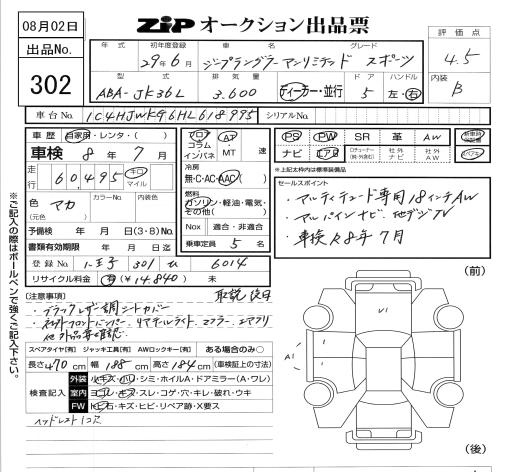 08月02日
ZiP オークション出品票
出品No.
302
年式 初年度登録 車名 グレード
29年6月 ジープラングラーアンリミテッド スポーツ
型式 排気量 ドア ハンドル
ABA-JK36L 3.600 ディーラー・並行 5 左・右
評価点
4.5
内装
B
車台No. 1C4HJWKG6HL618995 シリアルNo.
車歴 自家用・レンタ・( )
車検 8年 7月
走行 60,495 キロ マイル
色 マカ (元色) カラーNo. 内装色
予備検 年 月 日(3・8)No.
書類有効期限 年 月 日迄
登録No. 八王子 301 6014
リサイクル料金 有(¥14.840) 未
フロア コラム インパネ AT ・MT 速
冷房
無・C・AC・AAC
燃料
ガソリン・軽油・電気・その他( )
Nox 適合・非適合
乗車定員 5 名
PS PW SR 革 AW 新車時保証書
ナビ エアB 社外ナビ 社外AW 取説
※上記太枠内は標準装備品
セールスポイント
・マルティチュード専用18インチAW
・アルパインナビ 地デジTV
・車検R8年7月
注意事項 取説後日
・ブラックレザー調シートカバー
スペアタイヤ[有] ジャッキ工具[有] AWロックキー[有] ある場合のみ○
長さ470cm 幅188cm 高さ184cm (車検証上の寸法)
検査記入
外装 小キズ・凹・シミ・ホイルA・ドアミラー(A・ワレ)
室内 ヨゴレ・キズ・スレ・コゲ・穴・キレ・破れ・ウキ
FW トビ石・キズ・ヒビ・リペア跡・X要ス
ヘッドレスト1コ欠
※ご記入の際はボールペンで強くご記入下さい。
(前)
U1
A1
(後)